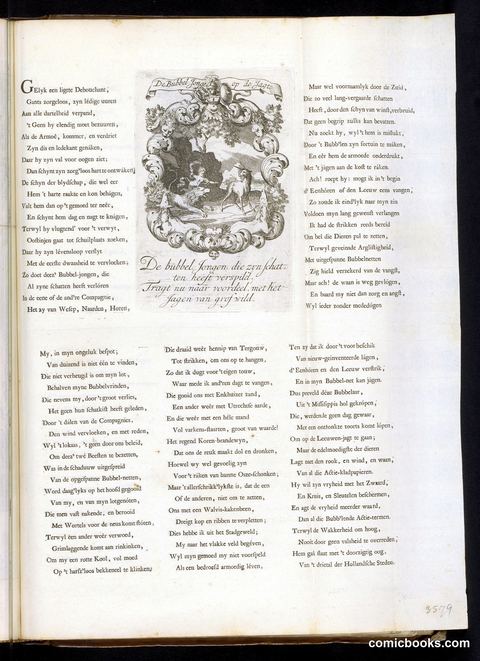 De Bubbel Jonge op de Jagt
De bubbel Jongen, die zen schat-
ten heeft verspild.
Tragt nu naar voordeel, met het
Jagen van grof wild.
GElyk een ligte Debouchant,
Gants zorgeloos, zyn lédige uuren
Aan alle dartelheid verpand,
't Geen hy elendig moet bezuuren,
Als de Armoê, kommer, en verdriet
Zyn dis en ledekant genáken,
Daar hy zyn val voor oogen ziet;
Dan schynt zyn zorg'loos hart te ontwáken;
De schyn der blydschap, die wel eer
Hem 't harte raakte en kon behágen,
Valt hem dan op 't gemoed ter neêr,
En schynt hem dag en nagt te knágen,
Terwyl hy vlugtend' voor 't verwyt,
Oostinjen gaat tot schuilplaats zoeken,
Daar hy zyn lévensloop verslyt
Met de eerste dwaasheid te vervloeken;
Zo doet deez' Bubbel-jongen, die
Al zyne schatten heeft verlóren
In de eene of de and're Compagnie,
Het zy van Wesep, Naarden, Horen,
Maar wel voornaamlyk door de Zuid,
Die zo veel lang-vergaarde schatten
Heeft, door den schyn van winst, verbruid,
Dat geen begrip zulks kan bevatten.
Nu zoekt hy, wyl 't hem is mislukt,
Door 't Bubb'len zyn fortuin te máken,
En eêr hem de armoede onderdrukt,
Met 't jágen aan de kost te ráken.
Ach! roept hy: mogt ik in 't begin
d' Eenhóren of den Leeuw eens vangen,
Zo zoude ik eind'lyk naar myn zin
Voldoen myn lang gewenst verlangen
Ik had de strikken reeds bereid
Om bei die Dieren pal te zetten,
Terwyl geveinsde Arglistigheid,
Met uitgespanne Bubbelnetten
Zig hield verzekerd van de vangst,
Maar ach! de waan is weg gevlógen,
En baard my niet dan zorg en angst,
Wyl ieder zonder mededógen
My, in myn ongeluk bespot;
Van duizend is niet één te vinden,
Die niet verheugd is om myn lot,
Behalven myne Bubbelvrinden,
Die nevens my, door 't groot verlies,
Het geen hun schatkist heeft geleden,
Door 't dálen van de Compagnies,
Den wind vervloeken, en met reden,
Wyl 't lokaas, 't geen door ons beleid,
Om deez' twé Beesten te bezetten,
Was in de schaduuw uitgespreid
Van de opgespanne Bubbel-netten,
Word daag'lyks op het hoofd gegooid
Van my, en van myn lotgenóten,
Die men vast nakend, en berooid
Met Wortels voor de neus komt stóten,
Terwyl een ander weêr verwoed,
Grimlaggende komt aan rinkinken,
Om my een rotte Kool, vol moed
Op 't harss'loos bekkeneel te klinken;
Die draaid weêr hennip van Tergouw,
Tot strikken, om ons op te hangen,
Zo dat ik dugt voor 't eigen touw,
Waar mede ik and'ren dagt te vangen,
Die gooid ons met Enkhuizer zand,
Een ander wéêr met Utrechtse aarde,
En die wéêr met een hêle mand
Vol varkens-staarten, groot van waarde!
Het regend Koren-brandewyn,
Dat ons de reuk maakt dol en dronken,
Hoewel wy wel gevoelig zyn
Voor 't risken van bunne Osze-schonken;
Maar 't allerschrikk'lykste is, dat de een
Of de anderen, niet om te zetten,
Ons met een Walvis-kakenbeen,
Dreigt kop en ribben te verpletten;
Dies hebbe ik uit het Stadgeweld;
My naar het vlakke veld begéven,
Wyl myn gemoed my niet voorspeld
Als een bedroefd armoedig léven,
Ten zy dat ik door 't voorbeschik
Van nieuw-geïnventeerde lágen,
d' Eenhóren en den Leeuw verstrik,
En in myn Bubbel-net kan jágen.
Dus preveld déze Bubbelaar,
Uit 't Missisippis hol gekrópen,
Die, werdende goen dag gewaar,
Met een ontvonkte toorts komt lópen,
Om op de Leeuwen-jagt te gaan;
Maar de edelmoedigste der dieren
Lagt met den rook, en wind, en waan,
Van al die Actie-kladpapieren.
Hy wil zyn vryheid met het Zwaard,
En Kruis, en Sleutelen beschermen,
En agt de vryheid meerder waard,
Dan al die Bubb'lende Actie-termen.
Terwyl de Wakkerheid om hoog,
Nooit door geen valsheid te overreden,
Hem gâ slaat met 't doorzigtig oog,
Van 't drietal der Hollandsche Steden.
3579
comicbooks.com